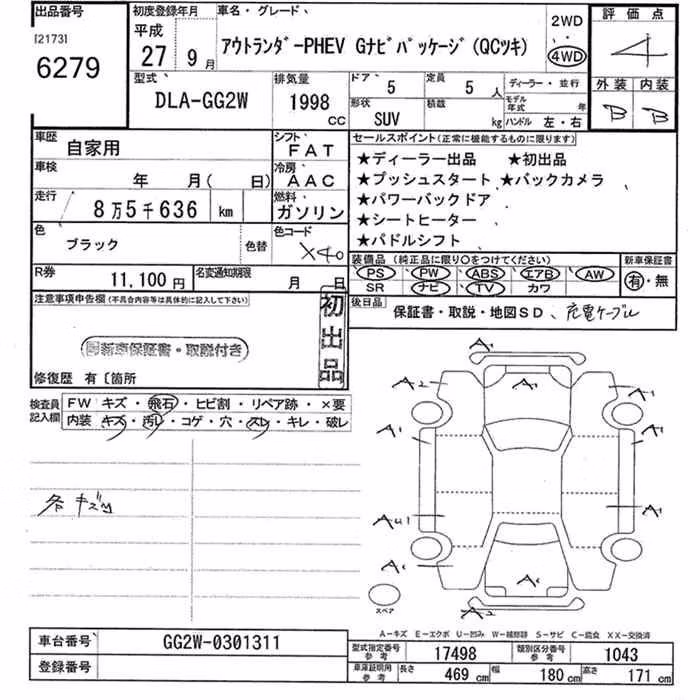 出品番号
[2173]
6279
初度登録年月
平成
27年9月
車名・グレード
アウトランダ゛-PHEV Gナビパッケージ(QCツキ)
2WD
4WD
評価点
4
外装 内装
B B
型式
DLA-GG2W
排気量
1998 CC
ドア 5
定員 5人
形状 SUV
積載 kg
ディーラー・並行
モデル年式 年
ハンドル 左・右
車歴 自家用
シフト FAT
車検 年 月( 日)
冷房 AAC
走行 8万5千636 km
燃料 ガソリン
色 ブラック
色替
色コード X40
R券 11,100円
名変通知期限 月 日
セールスポイント(正常に機能するものに限ります)
★ディーラー出品 ★初出品
★プッシュスタート ★バックカメラ
★パワーバックドア
★シートヒーター
★パドルシフト
装備品(純正品に限り○をつけてください)
PS PW ABS エアB AW
SR ナビ TV カワ
新車保証書
有・無
後日品
保証書・取説・地図SD、充電ケーブル
注意事項申告欄(不具合内容等は具体的に記入して下さい)
初出品
新車保証書・取説付き
修復歴 有〔箇所
検査員記入欄
FW キズ・飛石・ヒビ割・リペア跡・×要
内装 キズ・汚レ・コゲ・穴・スレ・キレ・破レ
各キズ
A1
A2
A1
A1
A1
A1
AU1
A1
A1
A1
A2
スペア
A-キズ E-エクボ U-凹み W-補修跡 S-サビ C-腐食 XX-交換済
車台番号 GG2W-0301311
登録番号
型式指定番号 参考 17498
類別区分番号 参考 1043
車庫証明用 参考
長さ 469 cm
幅 180 cm
高さ 171 cm